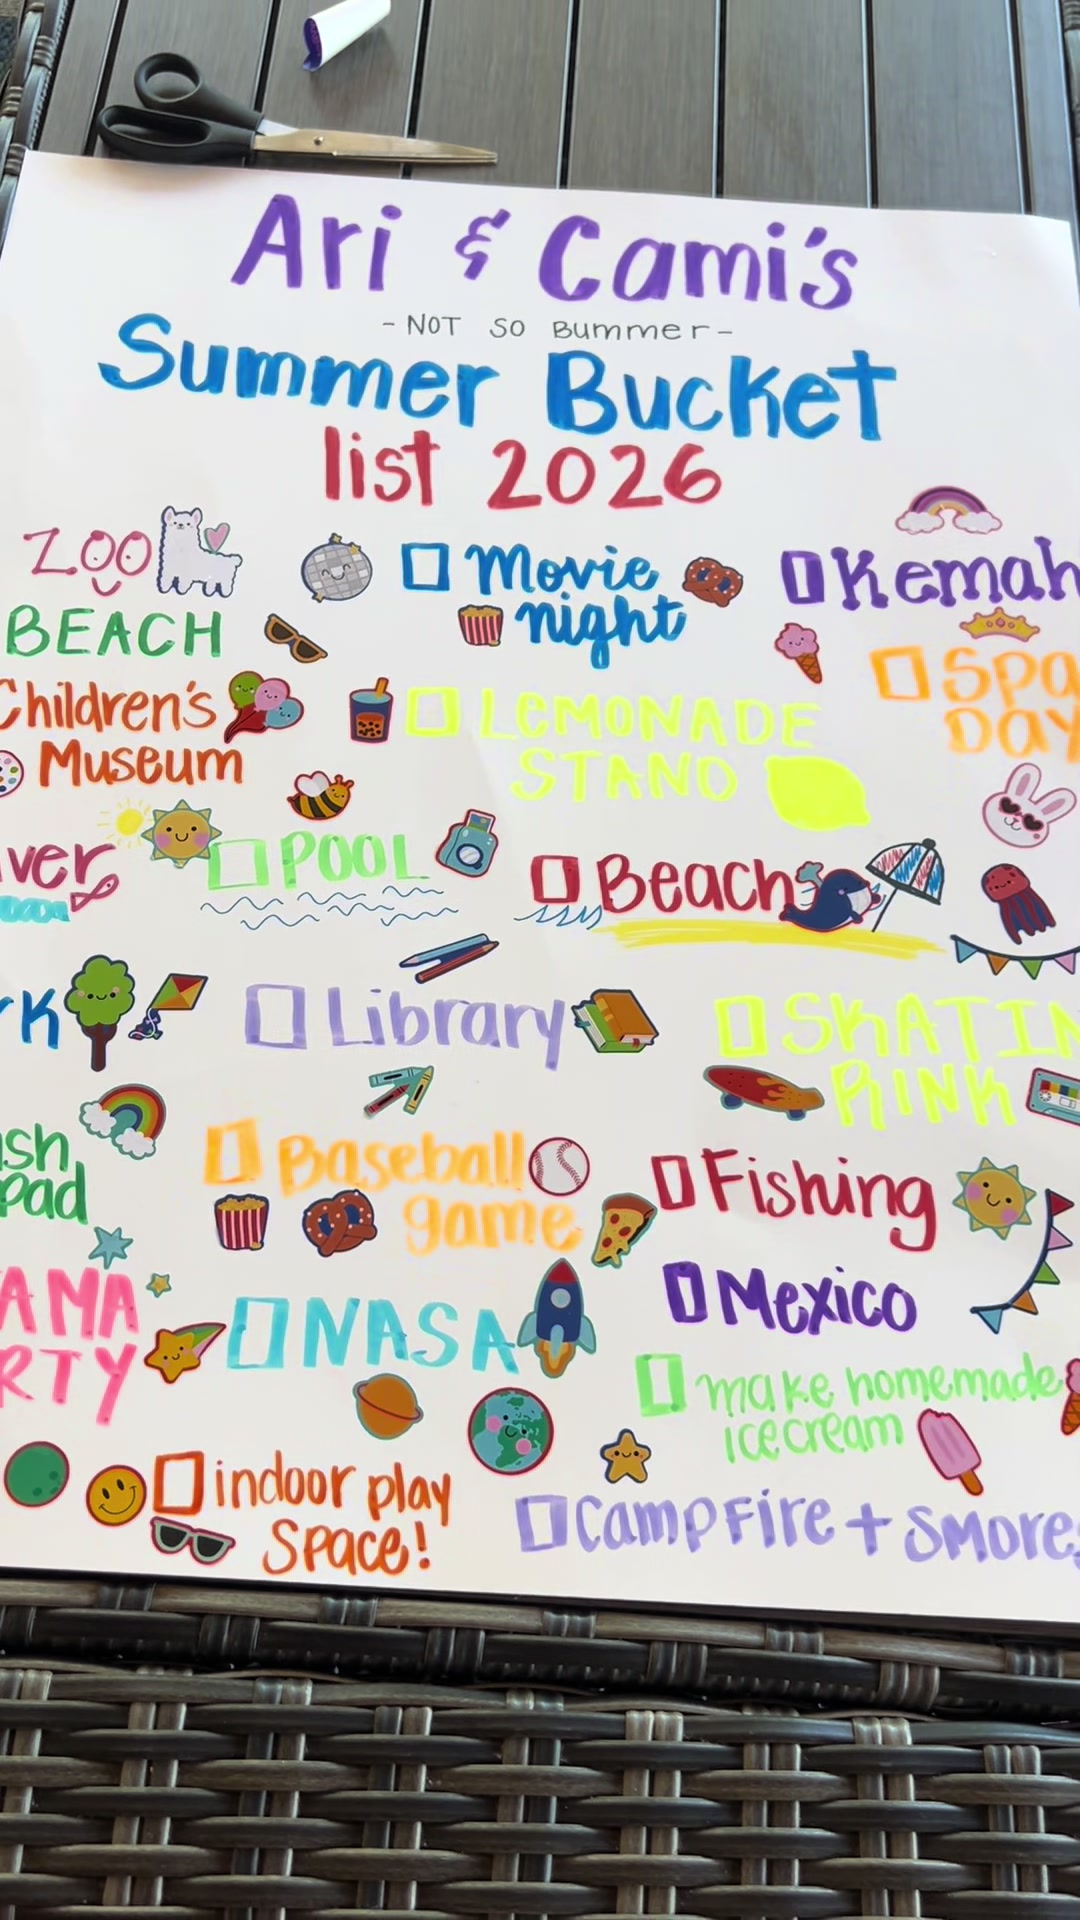 Ari & Cami's
- NOT SO Bummer -
Summer Bucket
list 2026
ZOO
Movie
night
Kemah
BEACH
Spa
Day
Children's
Museum
LEMONADE
STAND
ver
POOL
Beach
rk
Library
SKATIN
RINK
sh
pad
Baseball
game
Fishing
AMA
RTY
NASA
Mexico
make homemade
icecream
indoor play
Space!
CampFire + Smores